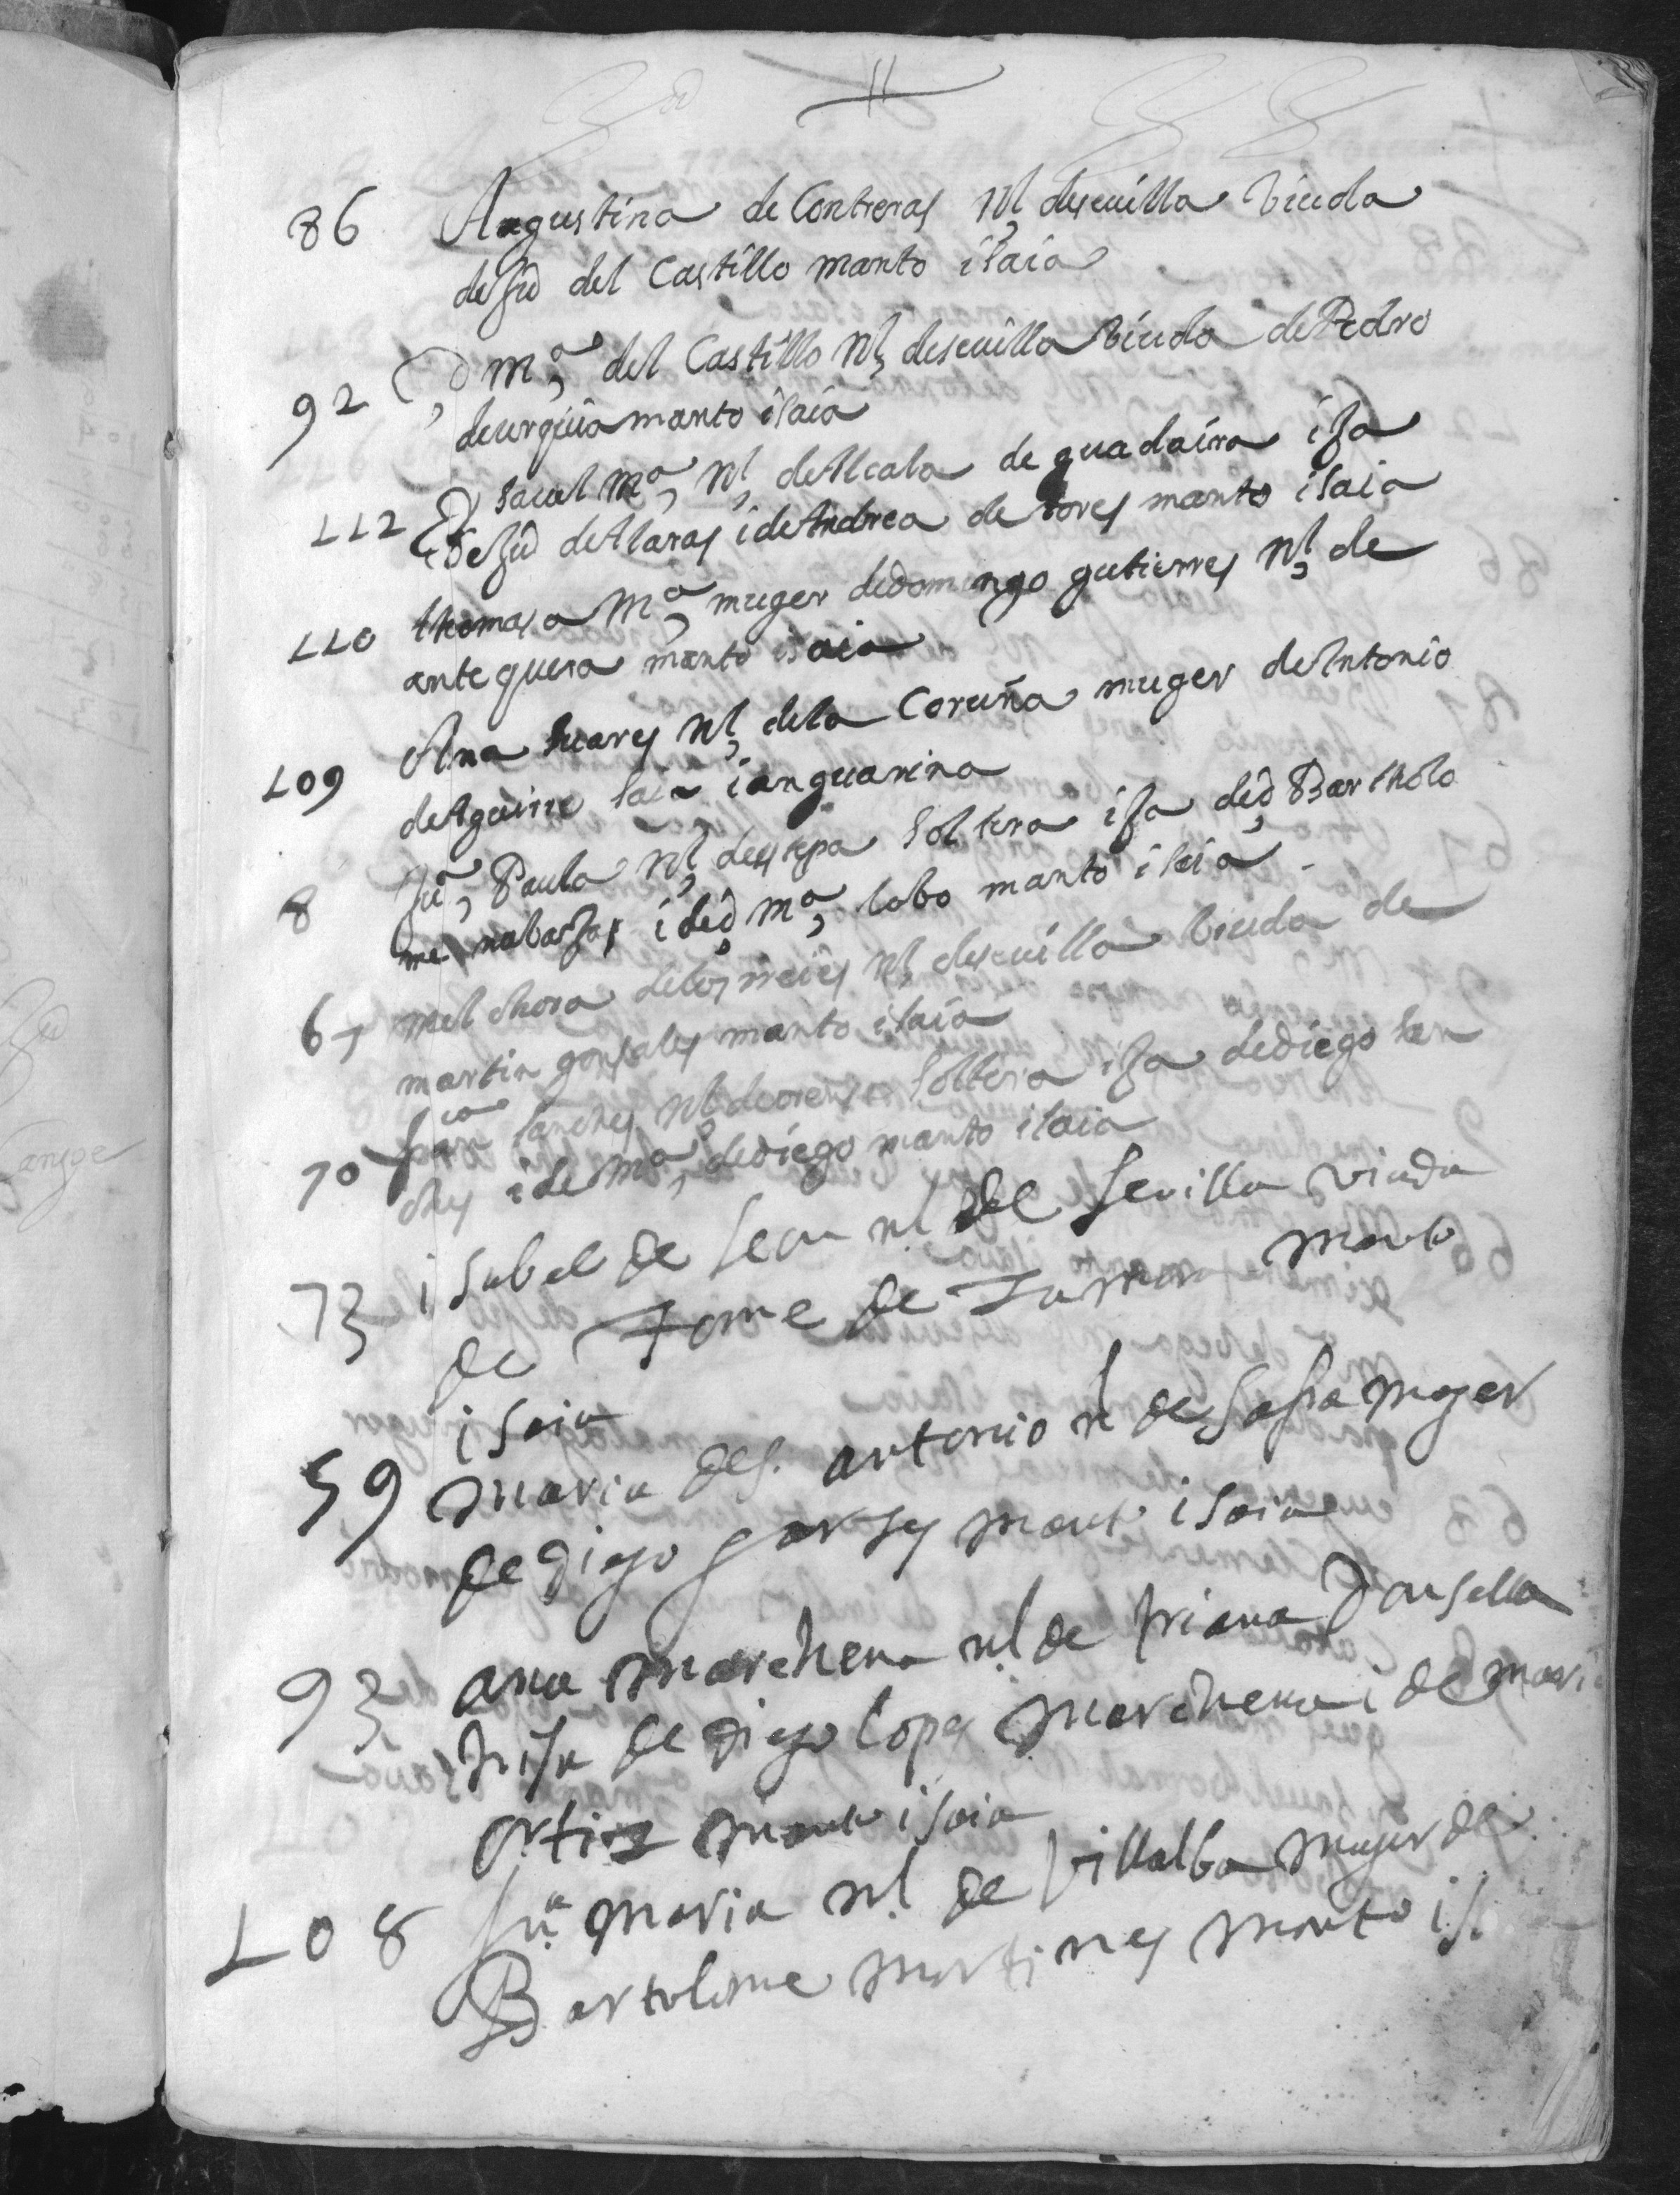 86 Augustina de Contreras nl de seuilla biuda
de Ju del Castillo manto isaia
92 D ma del Castillo nl de seuilla biuda de Pedro
de urquia manto isaia
112 Ysauel ma nl de Alcala de guadaira ija
de Ju de Alaras i de Andrea de tores manto isaia
110 thomasa ma muger de domingo gutierres nl de
antequera manto isaia
109 Ana suares nl de la Coruña muger de Antonio
de Aguirre saia i anguarina
8 Jua Paula nl de estepa soltera ija de d Bartholo
me nabarja i de d ma lobo manto isaia
67 melchora de los reies nl de seuilla biuda de
martin gonsales manto isaia
70 franca sanches nl de orense soltera ija de diego san
ches i de ma de diego manto isaia
73 isabel de leon nl de sevilla viuda
de tome de manto
isaia
59 maria de s. antonio nl de safra muger
de diego garses manto isaia
93 ana marchena nl de triana donsella
hija de diego lopes marchena i de mari
ortis manto isaia
108 Jua maria nl de villalba muger de
Bartolome martines manto is.